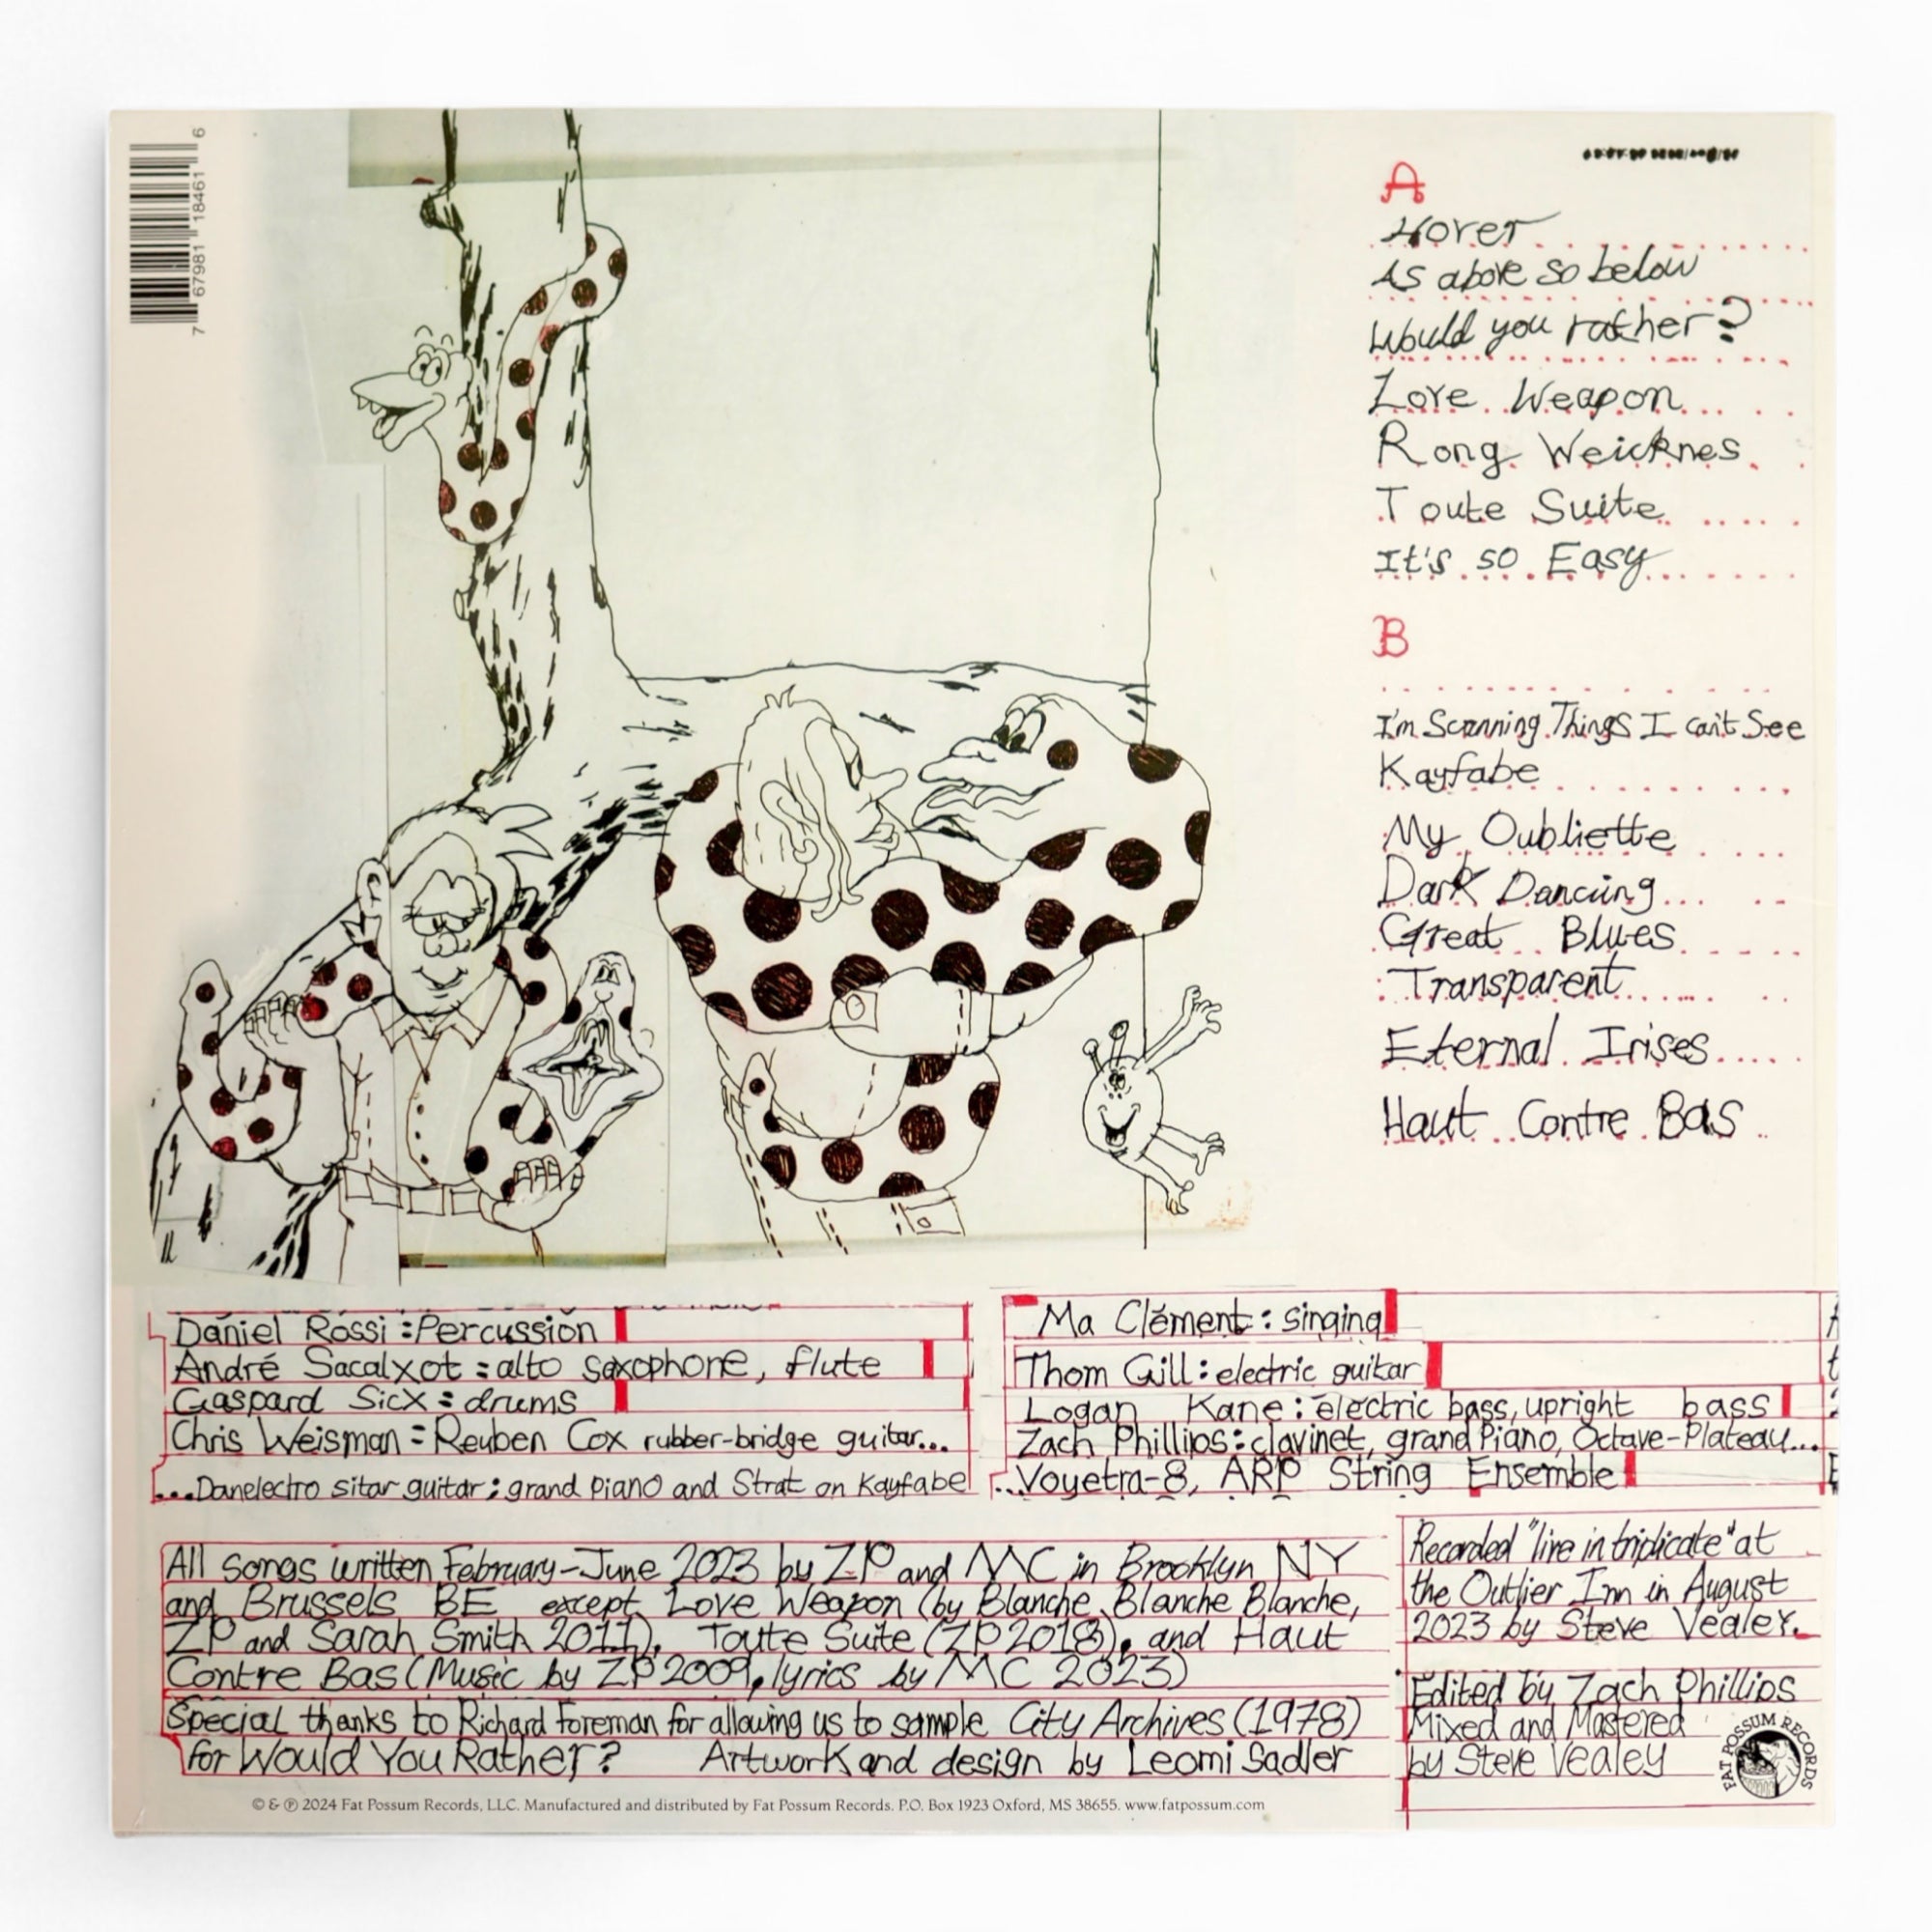 7 67981 18461 6
A
Hover
As above so below
Would you rather?
Love Weapon
Rong Weicknes
Toute Suite
It's so Easy
B
I'm Scanning Things I can't See
Kayfabe
My Oubliette
Dark Dancing
Great Blues
Transparent
Eternal Irises
Haut Contre Bas
Daniel Rossi : Percussion
André Sacalxot : alto saxophone, flute
Gaspard Sicx : drums
Chris Weisman : Reuben Cox rubber-bridge guitar...
...Danelectro sitar guitar; grand piano and Strat on Kayfabe
Ma Clément : singing
Thom Gill : electric guitar
Logan Kane : electric bass, upright bass
Zach Phillips : clavinet, grand Piano, Octave-Plateau...
...Voyetra-8, ARP String Ensemble
All songs written February-June 2023 by ZP and MC in Brooklyn NY
and Brussels BE except Love Weapon (by Blanche Blanche Blanche,
ZP and Sarah Smith 2011), Toute Suite (ZP 2018), and Haut
Contre Bas (Music by ZP 2009, lyrics by MC 2023)
Special thanks to Richard Foreman for allowing us to sample City Archives (1978)
for Would You Rather? Artwork and design by Leomi Sadler
Recorded "live in triplicate" at
the Outlier Inn in August
2023 by Steve Vealey.
Edited by Zach Phillips
Mixed and Mastered
by Steve Vealey
FAT POSSUM RECORDS
© & ℗ 2024 Fat Possum Records, LLC. Manufactured and distributed by Fat Possum Records. P.O. Box 1923 Oxford, MS 38655. www.fatpossum.com